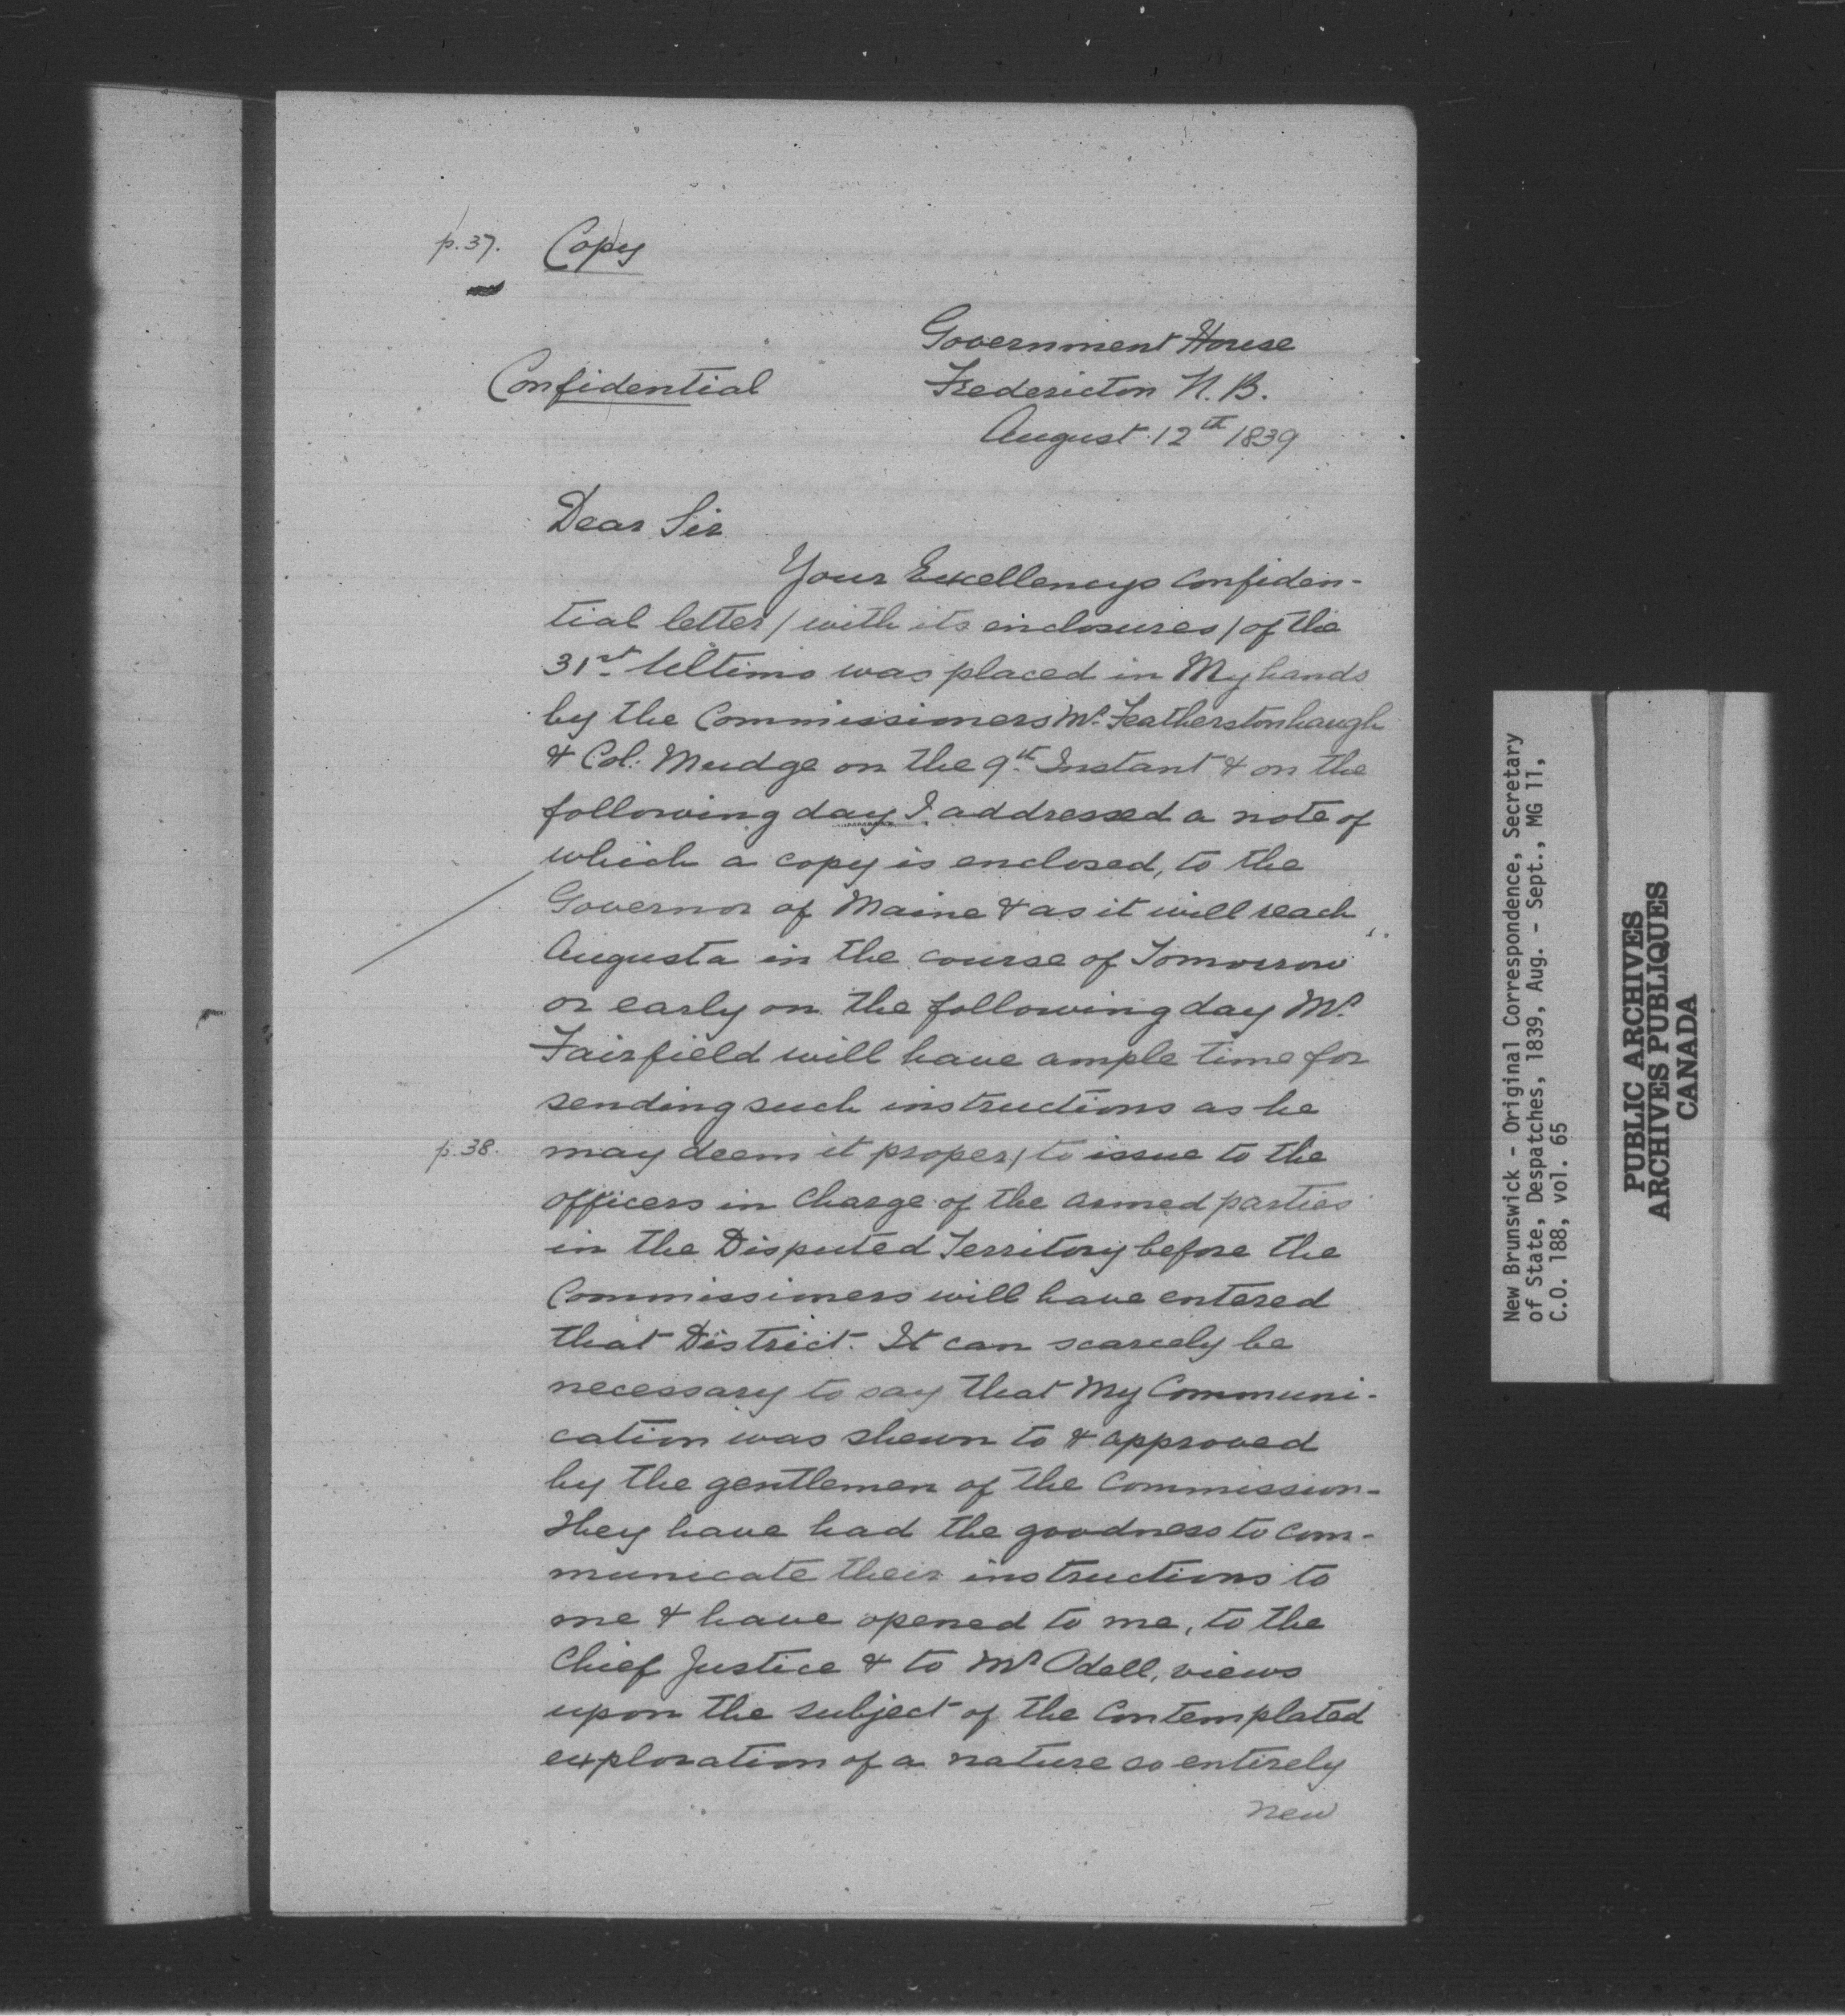 p.37. Copy
Government House
Confidential Fredericton N. B.
August 12th 1839
Dear Sir
Your Excellencys Confiden-
tial letter / with its enclosures / of the
31st Ultimo was placed in My hands
by the Commissioners Mr. Featherstonhaugh
& Col. Mudge on the 9th Instant & on the
following day I addressed a note of
which a copy is enclosed, to the
Governor of Maine & as it will reach
Augusta in the course of Tomorrow
or early on the following day Mr.
Fairfield will have ample time for
sending such instructions as he
p.38. may deem it proper / to issue to the
officers in Charge of the armed parties
in the Disputed Territory before the
Commissioners will have entered
that District. It can scarcely be
necessary to say that My Communi-
cation was shewn to & approved
by the gentlemen of the Commission-
They have had the goodness to com-
municate their instructions to
me & have opened to me, to the
Chief Justice & to Mr Odell, views
upon the subject of the Contemplated
exploration of a nature so entirely
new
New Brunswick - Original Correspondence, Secretary
of State, Despatches, 1839, Aug. - Sept., MG 11,
C.O. 188, vol. 65
PUBLIC ARCHIVES
ARCHIVES PUBLIQUES
CANADA